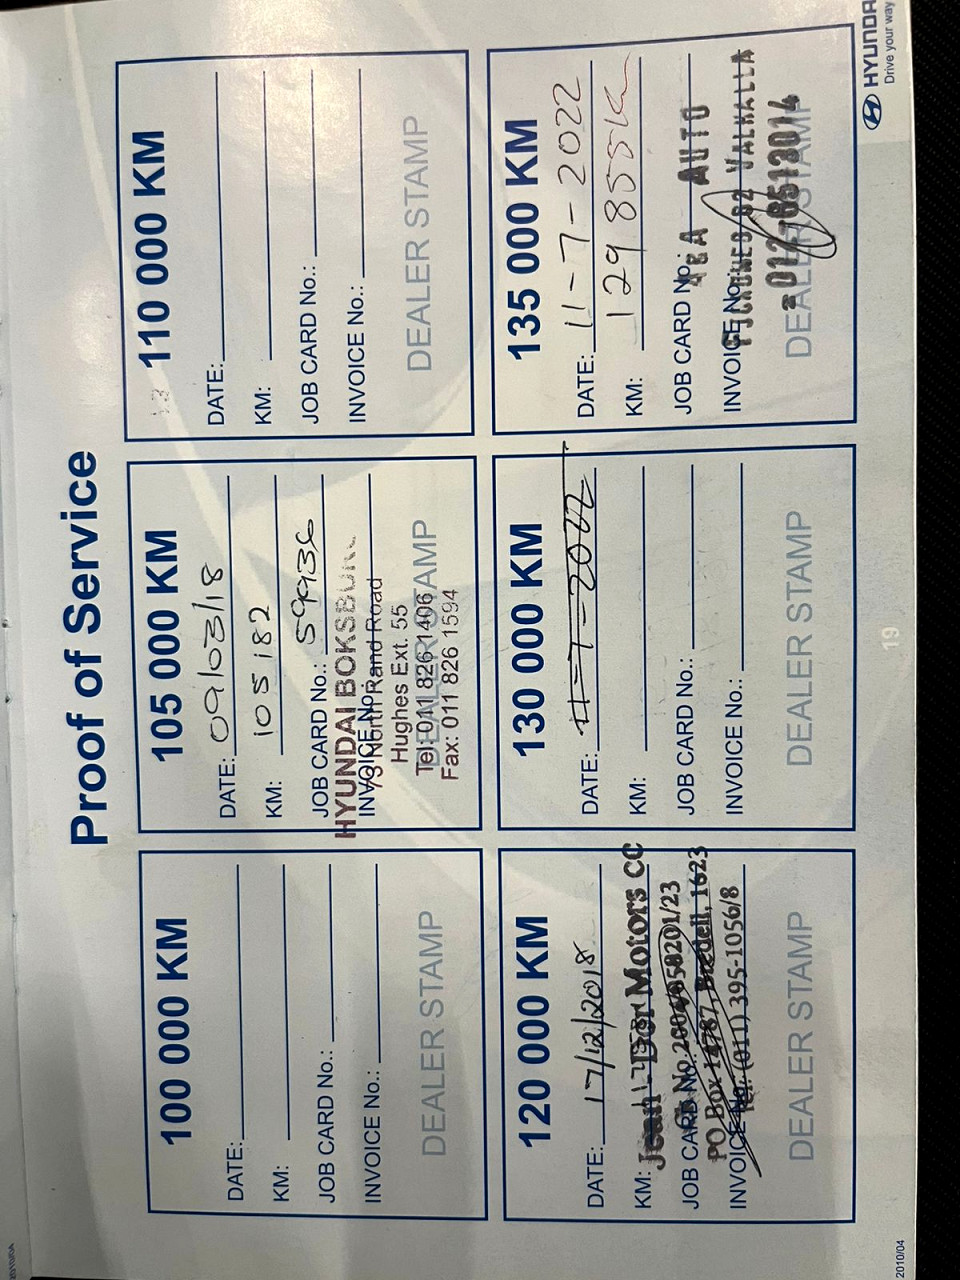 Proof of Service
100 000 KM
DATE:
KM:
JOB CARD No.:
INVOICE No.:
DEALER STAMP
105 000 KM
DATE: 09/03/18
KM: 105 182
JOB CARD No.: 59936
INVOICE No.:
HYUNDAI BOKSBURG
73 North Rand Road
Hughes Ext. 55
Tel: 011 826 1406
Fax: 011 826 1594
DEALER STAMP
110 000 KM
DATE:
KM:
JOB CARD No.:
INVOICE No.:
DEALER STAMP
120 000 KM
DATE: 17/12/2018
KM:
Jean
Motors CC
JOB CARD No.:
PO Box 14787, Bredell, 1623
INVOICE No.:
Tel: (011) 395-1056/8
DEALER STAMP
130 000 KM
DATE: 11-7-2022
KM:
JOB CARD No.:
INVOICE No.:
DEALER STAMP
135 000 KM
DATE: 11-7-2022
KM: 129855km
JOB CARD No.:
AUTO
INVOICE No.:
82 VALHALLA
012-6513014
DEALER STAMP
2010/04
19
HYUNDAI
Drive your way
2010/04